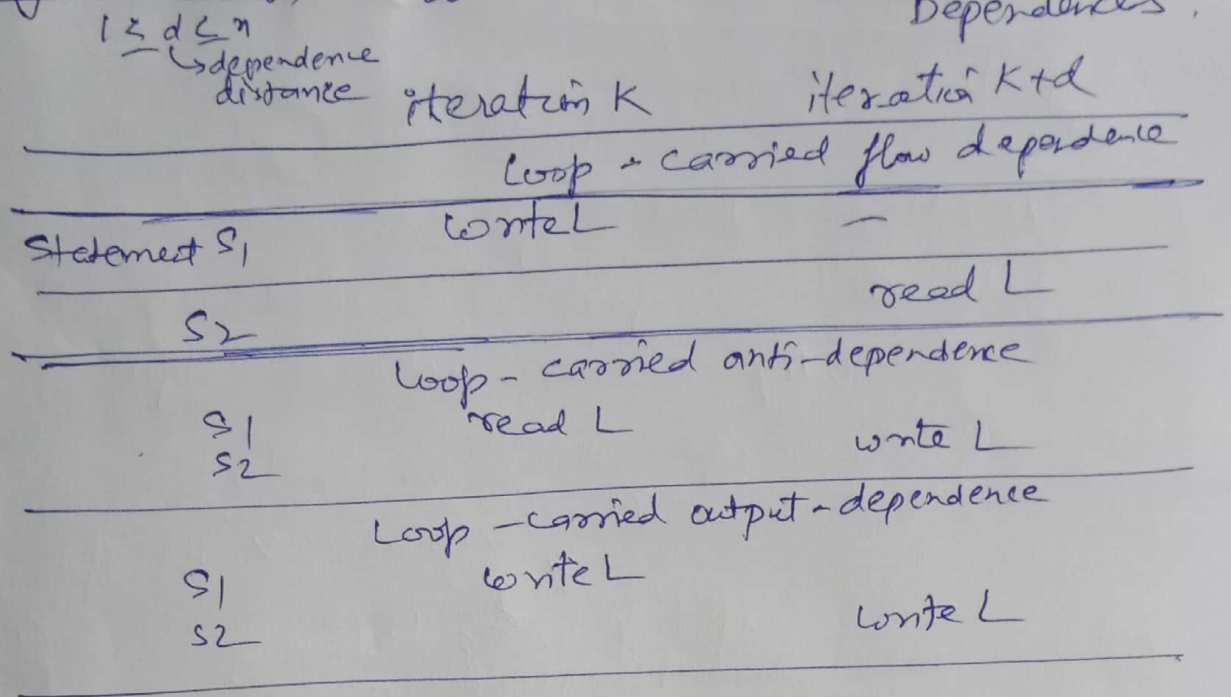 Dependences.
1 ≤ d ≤ n
↳ dependence
distance iteration K iteration K+d
loop - carried flow dependence
write L —
Statement S1
read L
S2
loop - carried anti-dependence
S1 read L write L
S2
Loop - carried output - dependence
S1 write L
S2 write L